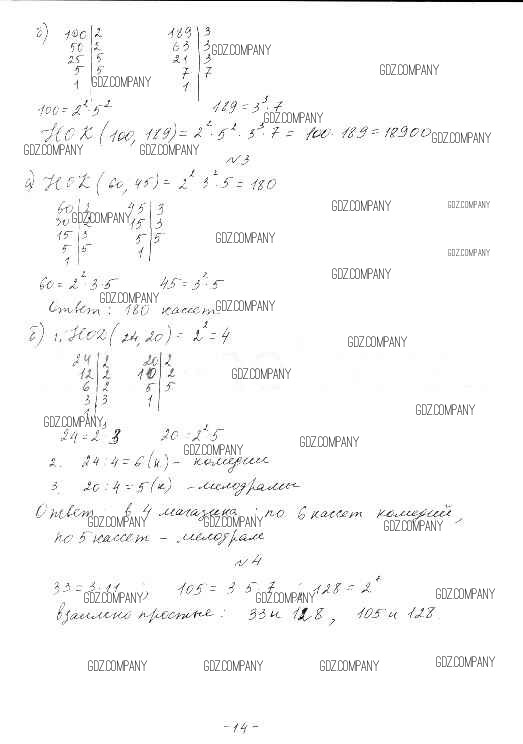 б) 100|2 189|3
50|2 63|3
25|5 21|3
5|5 7|7
1 1
100 = 2²·5² 189 = 3³·7
НОК (100, 189) = 2²·5²·3³·7 = 100·189 = 18900
N3
а) НОК (60, 45) = 2²·3²·5 = 180
60|2 45|3
30|2 15|3
15|3 5|5
5|5 1
1
60 = 2²·3·5 45 = 3²·5
Ответ: 180 кассет
б) 1. НОД (24, 20) = 2² = 4
24|2 20|2
12|2 10|2
6|2 5|5
3|3 1
1
24 = 2³·3 20 = 2²·5
2. 24:4 = 6 (к) – комедии
3. 20:4 = 5 (к) – мелодрамы
Ответ в 4 магазина; по 6 кассет комедий,
по 5 кассет – мелодрам
N4
33 = 3·11; 105 = 3·5·7; 128 = 2⁷
Взаимно простые: 33 и 128, 105 и 128.
-14-
GDZ.COMPANY